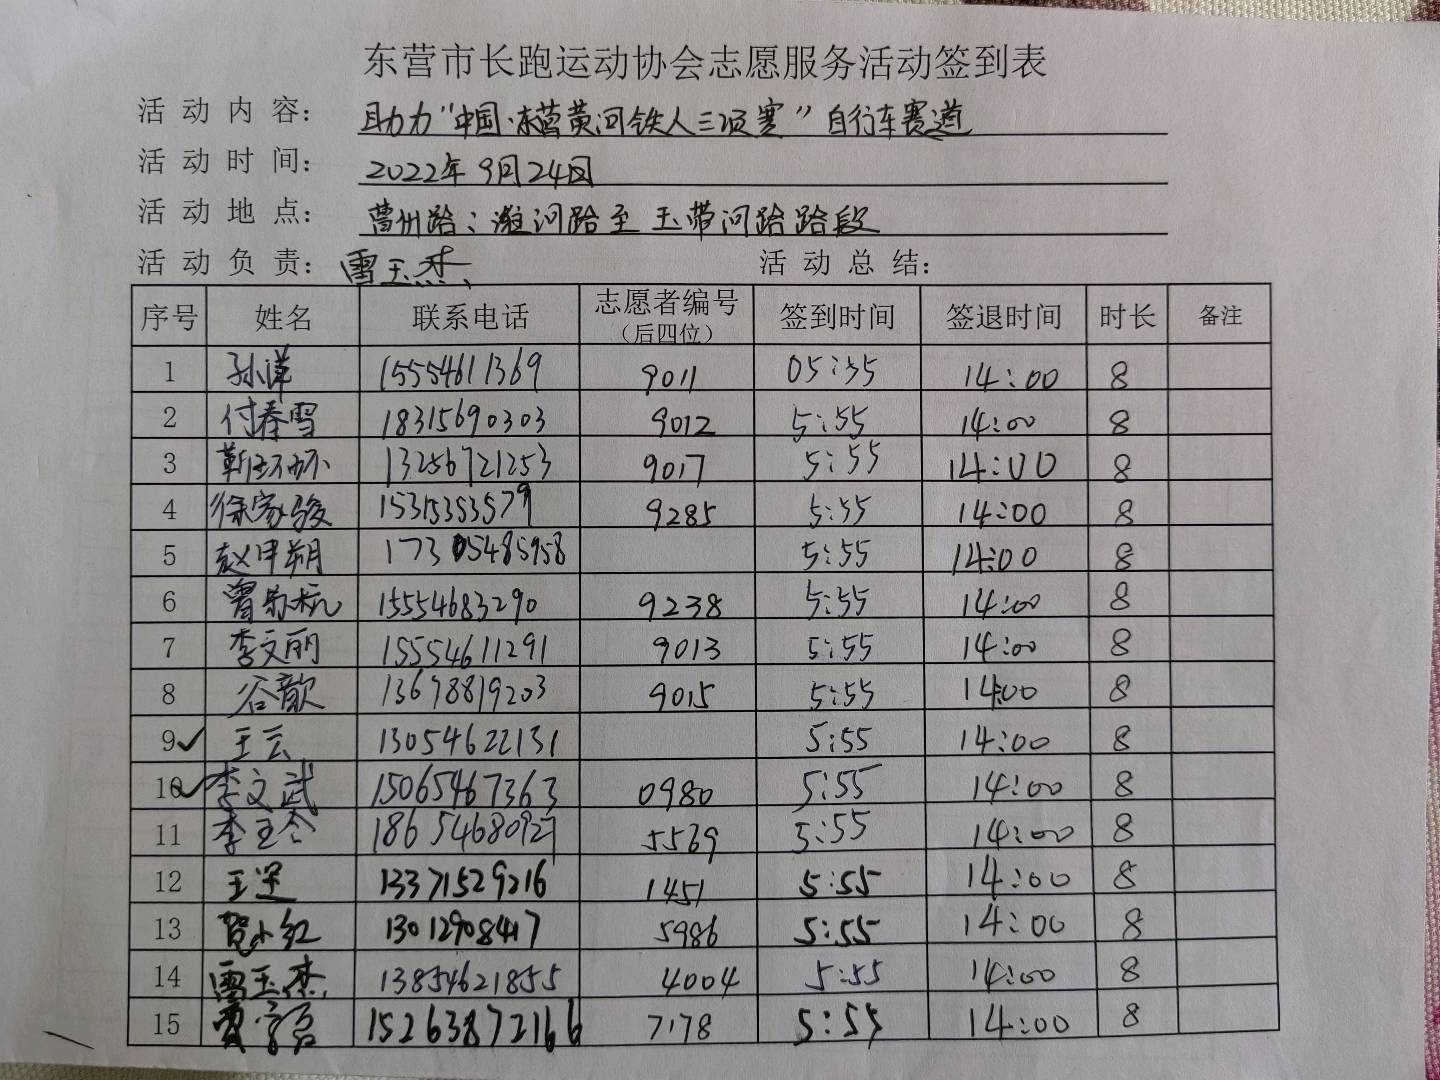 东营市长跑运动协会志愿服务活动签到表
活动内容： 助力"中国·东营黄河铁人三项赛"自行车赛道
活动时间： 2022年9月24日
活动地点： 莒州路：潍河路至玉带河路路段
活动负责： 雷玉杰 活动总结：
序号 姓名 联系电话 志愿者编号（后四位） 签到时间 签退时间 时长 备注
1 孙洋 15554611369 9011 05:55 14:00 8
2 付春雪 18315690303 9012 5:55 14:00 8
3 靳环环 13256721253 9017 5:55 14:00 8
4 徐家骏 15315353579 9285 5:55 14:00 8
5 赵甲朔 17305485958 5:55 14:00 8
6 曾 15554683290 9238 5:55 14:00 8
7 李文丽 15554611291 9013 5:55 14:00 8
8 谷歆 13678819203 9015 5:55 14:00 8
9✓ 王云 13054622131 5:55 14:00 8
10✓ 李文武 15065467363 0980 5:55 14:00 8
11 李 18654680927 5569 5:55 14:00 8
12 王 13371529216 1451 5:55 14:00 8
13 贺小红 13012908417 5986 5:55 14:00 8
14 雷玉杰 13854621855 4004 5:55 14:00 8
15 15263872166 7178 5:55 14:00 8